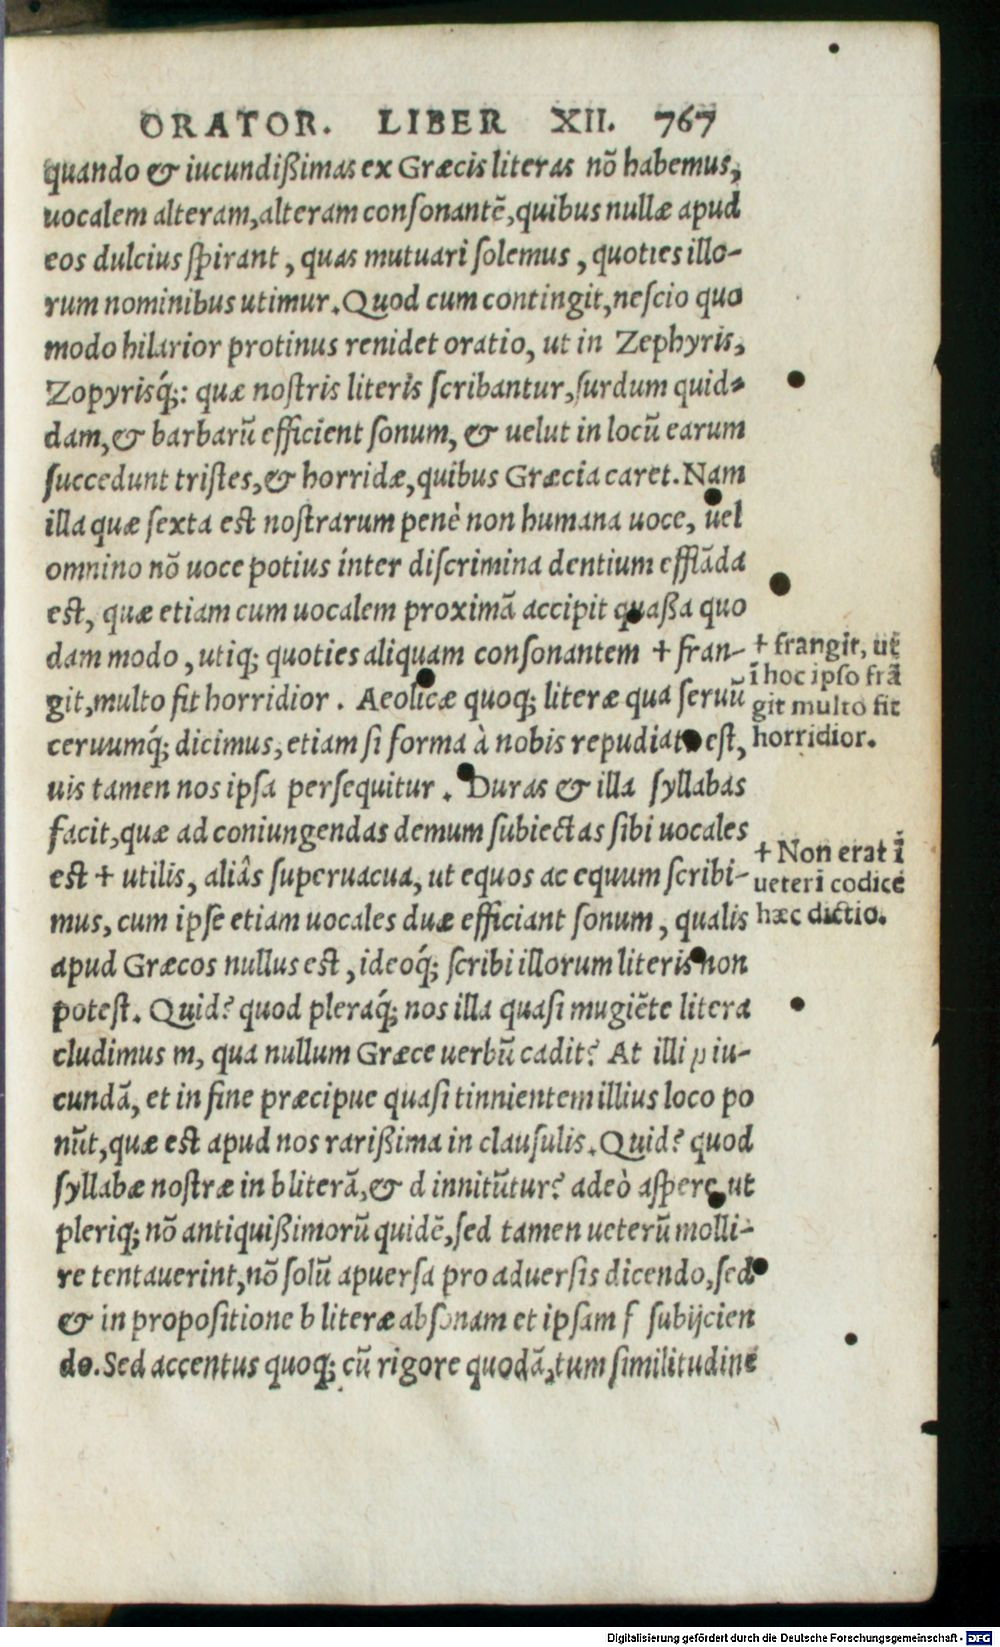 ORATOR. LIBER XII. 767
quando & iucundißimas ex Græcis literas nō habemus,
uocalem alteram, alteram consonantē, quibus nullæ apud
eos dulcius spirant, quas mutuari solemus, quoties illo-
rum nominibus utimur. Quod cum contingit, nescio quo
modo hilarior protinus renidet oratio, ut in Zephyris,
Zopyrisq́;: quæ nostris literis scribantur, surdum quid-
dam, & barbarū efficient sonum, & uelut in locū earum
succedunt tristes, & horridæ, quibus Græcia caret. Nam
illa quæ sexta est nostrarum penè non humana uoce, uel
omnino nō uoce potius inter discrimina dentium efflāda
est, quæ etiam cum uocalem proximā accipit quaßa quo
dam modo, utiq; quoties aliquam consonantem + fran-
git, multo fit horridior. Aeolicæ quoq; literæ qua seruū
ceruumq́; dicimus, etiam si forma à nobis repudiata est,
uis tamen nos ipsa persequitur. Duras & illa syllabas
facit, quæ ad coniungendas demum subiectas sibi uocales
est + utilis, aliâs superuacua, ut equos ac equum scribi-
mus, cum ipse etiam uocales duæ efficiant sonum, qualis
apud Græcos nullus est, ideoq́; scribi illorum literis non
potest. Quid? quod pleraq́; nos illa quasi mugiēte litera
cludimus m, qua nullum Græce uerbū cadit? At illi ꝓ iu-
cundā, et in fine præcipue quasi tinnientem illius loco po
nūt, quæ est apud nos rarißima in clausulis. Quid? quod
syllabæ nostræ in b literā, & d innitūtur? adeò aspere, ut
pleriq; nō antiquißimorū quidē, sed tamen ueterū molli-
re tentauerint, nō solū apuersa pro aduersis dicendo, sed
& in propositione b literæ absonam et ipsam ſ subijcien
do. Sed accentus quoq; cū rigore quodā, tum similitudine
+ frangit, ut
ī hoc ipso frā
git multo fit
horridior.
+ Non erat ī
ueteri codice
hæc dictio.
Digitalisierung gefördert durch die Deutsche Forschungsgemeinschaft - DFG